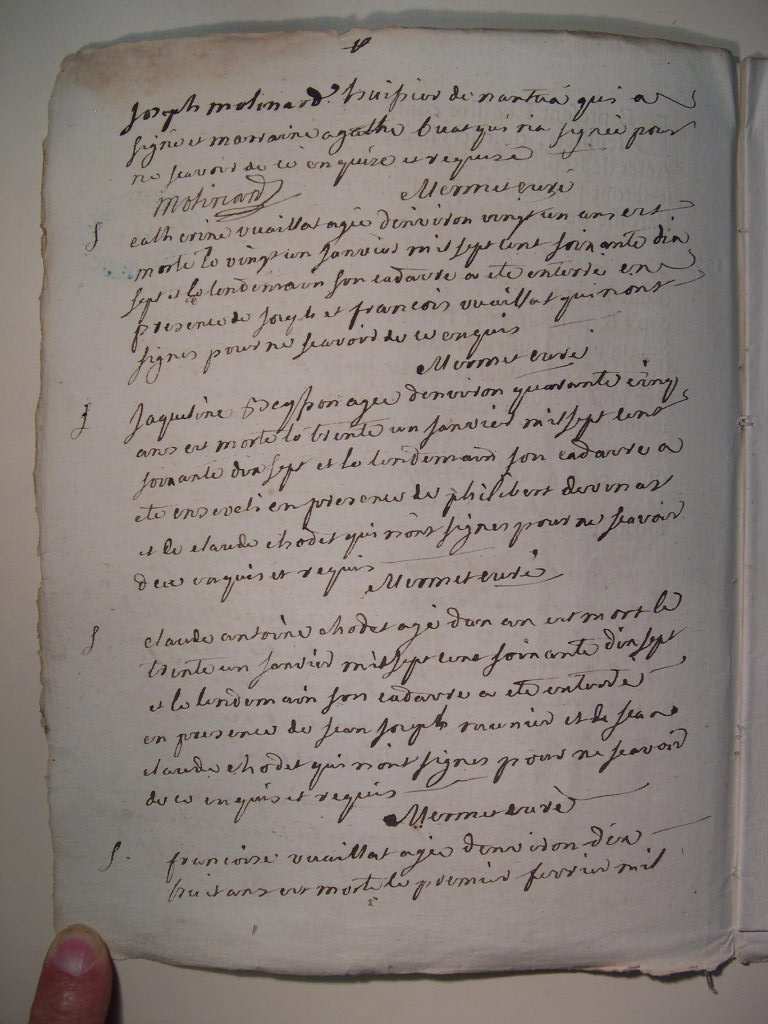 Joseph molinard huissier de nantua qui a
signé et marraine agathe buat qui na signée pour
ne scavoir de ce enquize et requize
Molinard Mermet curé
catherine vuaillat agée denviron vingt un ans est
morte le vingt un janvier mil sept cent soixante dix
sept et le lendemain son cadavre a ete enterré en
presence de joseph et francois vuaillat qui nont
signes pour ne scavoir de ce enquis
Mermet curé
jaqueline agée denviron quarante cinq
ans est morte le trente un janvier mil sept cent
soixante dix sept et le lendemain son cadavre a
ete enseveli en presence de philibert
et de claude chodet qui nont signes pour ne scavoir
de ce enquis et requis Mermet curé
claude antoine chodet agé dun an est mort le
trente un janvier mil sept cent soixante dix sept
et le lendemain son cadavre a ete enterré
en presence de jean joseph et de jean
claude chodet qui nont signes pour ne scavoir
de ce enquis et requis
Mermet curé
francoise vuaillat agée denviron dix
huit ans est morte le premier fevrier mil